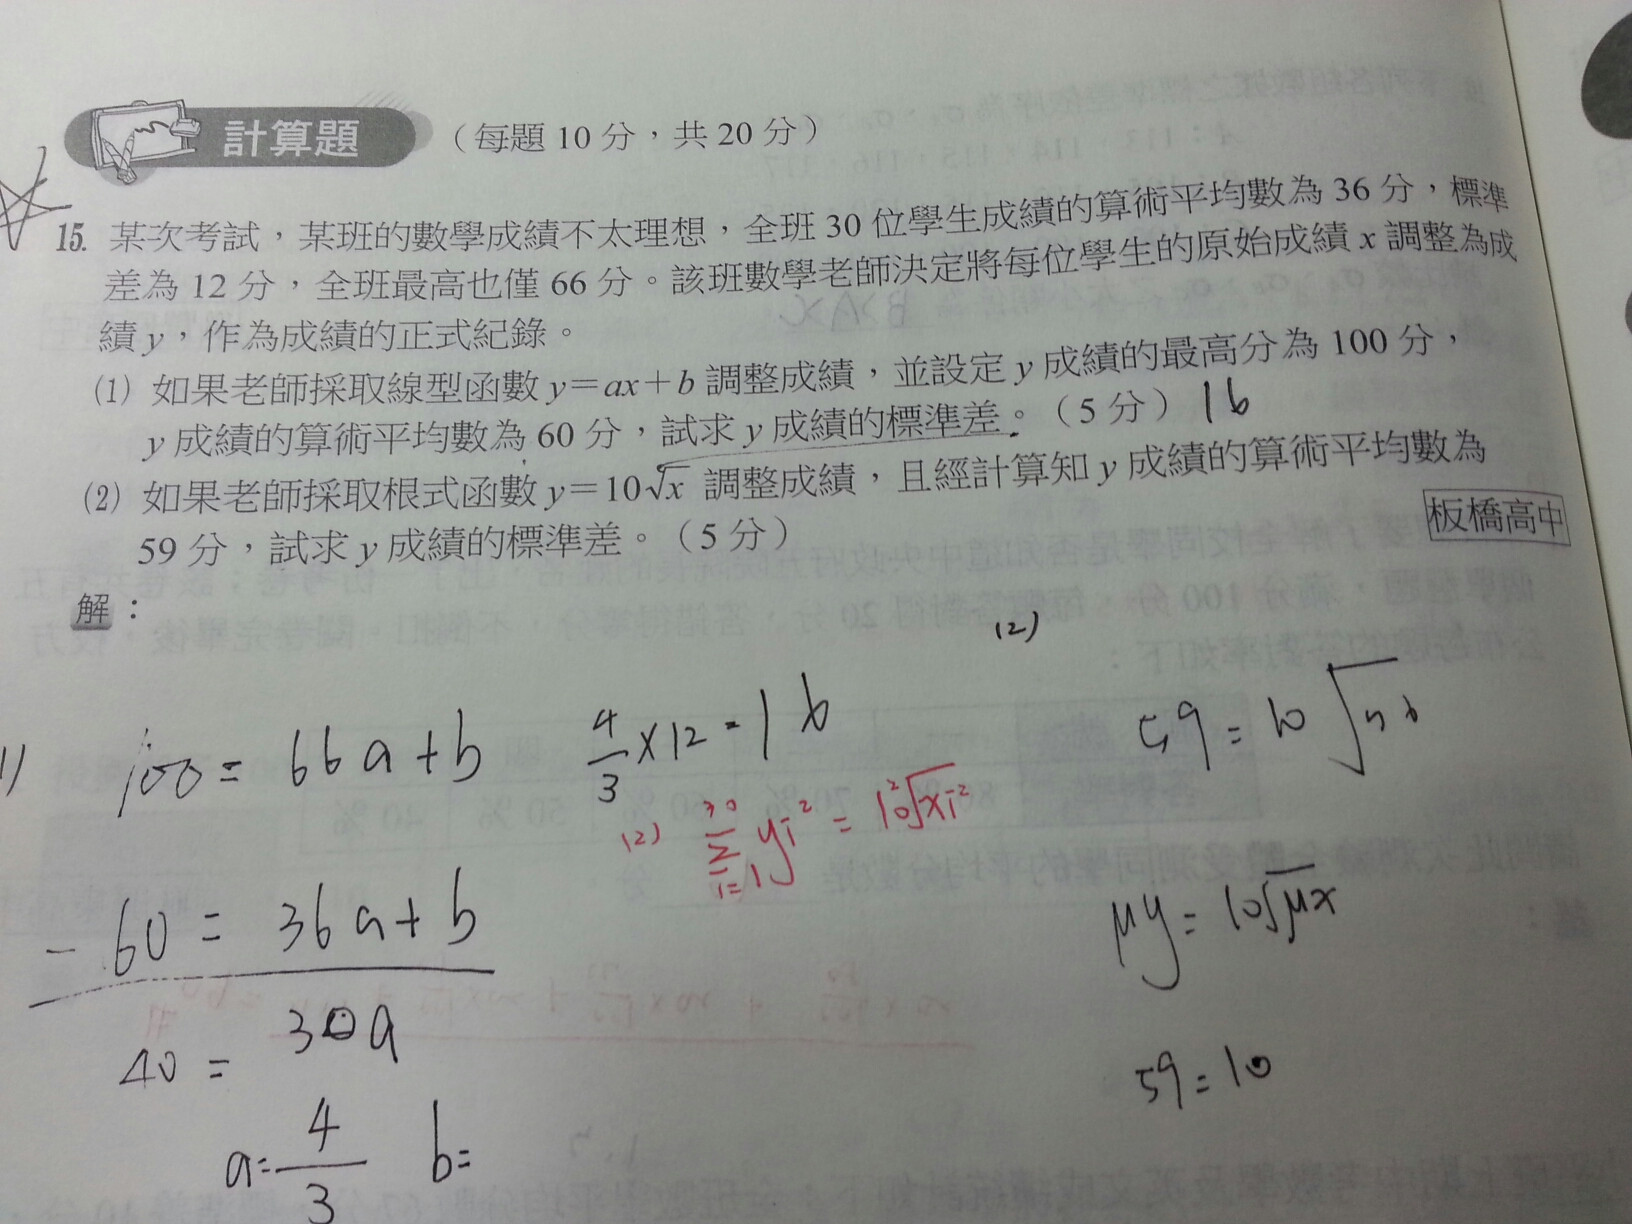 計算題 （每題 10 分，共 20 分）
15. 某次考試，某班的數學成績不太理想，全班 30 位學生成績的算術平均數為 36 分，標準
差為 12 分，全班最高也僅 66 分。該班數學老師決定將每位學生的原始成績 x 調整為成
績 y，作為成績的正式紀錄。
(1) 如果老師採取線型函數 y＝ax＋b 調整成績，並設定 y 成績的最高分為 100 分，
y 成績的算術平均數為 60 分，試求 y 成績的標準差。（5 分） 16
(2) 如果老師採取根式函數 y＝10√x 調整成績，且經計算知 y 成績的算術平均數為
59 分，試求 y 成績的標準差。（5 分）
板橋高中
解：
100 = 66a+b
- 60 = 36a+b
40 = 30a
a= 4/3 b=
4/3 ×12 = 16
(2) 30 Σ i=1 yi² = 10²√xi²
(2)
59 = 10√
μy = 10√μx
59 = 10